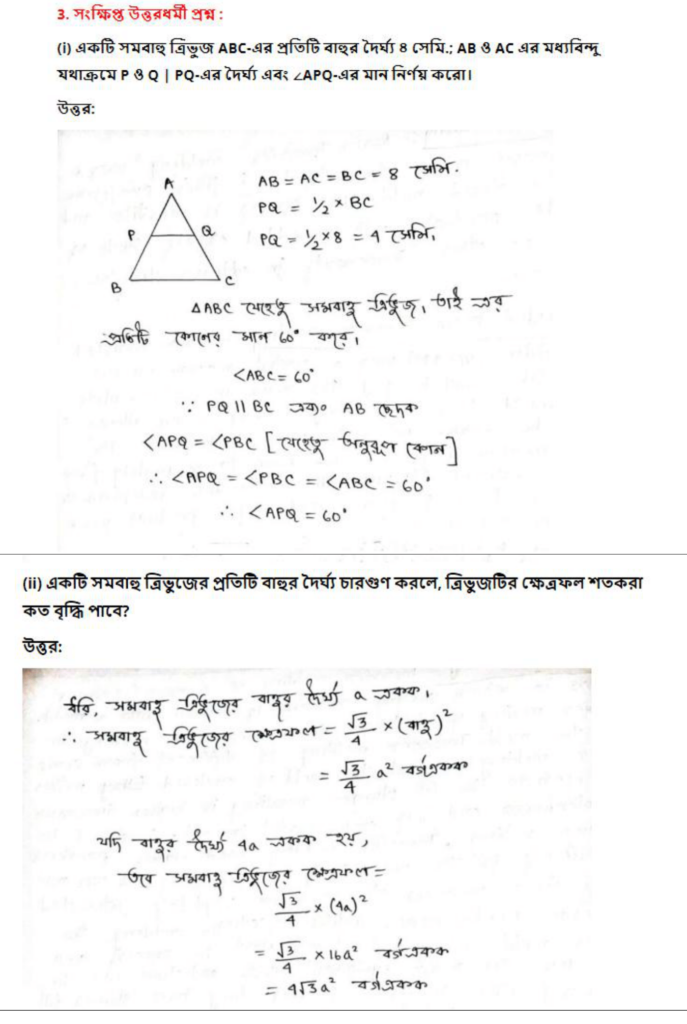 3. সংক্ষিপ্ত উত্তরধর্মী প্রশ্ন :
(i) একটি সমবাহু ত্রিভুজ ABC-এর প্রতিটি বাহুর দৈর্ঘ্য ৪ সেমি.; AB ও AC এর মধ্যবিন্দু
যথাক্রমে P ও Q | PQ-এর দৈর্ঘ্য এবং ∠APQ-এর মান নির্ণয় করো।
উত্তর:
A
P
Q
B
C
AB = AC = BC = 8 সেমি.
PQ = 1/2 × BC
PQ = 1/2 × 8 = 4 সেমি,
△ABC যেহেতু সমবাহু ত্রিভুজ, তাই এর
প্রতিটি কোণের মান 60° করে,
∠ABC = 60°
∵ PQ || BC এবং AB ছেদক
∠APQ = ∠PBC [যেহেতু অনুরূপ কোন]
∴ ∠APQ = ∠PBC = ∠ABC = 60°
∴ ∠APQ = 60°
(ii) একটি সমবাহু ত্রিভুজের প্রতিটি বাহুর দৈর্ঘ্য চারগুণ করলে, ত্রিভুজটির ক্ষেত্রফল শতকরা
কত বৃদ্ধি পাবে?
উত্তর:
ধরি, সমবাহু ত্রিভুজের বাহুর দৈর্ঘ্য a একক,
∴ সমবাহু ত্রিভুজের ক্ষেত্রফল = √3/4 × (বাহু)²
= √3/4 a² বর্গএকক
যদি বাহুর দৈর্ঘ্য 4a একক হয়,
তবে সমবাহু ত্রিভুজের ক্ষেত্রফল =
√3/4 × (4a)²
= √3/4 × 16a² বর্গএকক
= 4√3a² বর্গএকক